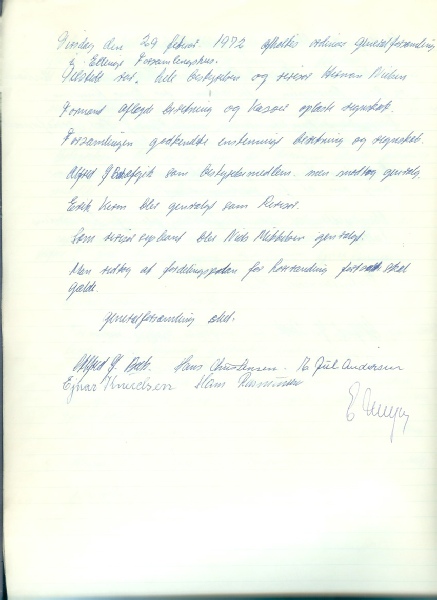 Tirsdag den 29 februar 1972 afholdtes ordinær generalforsamling
i Ellinge Forsamlingshus.
Tilstede var. Hele bestyrelsen og revisor Nielsen
Formand aflagde beretning og Kasser oplæste regnskab.
Forsamlingen godkendte enstemmigt beretning og regnskab.
Alfred G afgik som bestyrelsesmedlem. men modtog genvalg.
Erik blev genvalgt som Revisor.
Som revisor suppleant blev Niels Mikkelsen genvalgt.
Man vedtog at fordelingsplan for vanding fortsat skal
gælde.
Generalforsamling slut.
Alfred G. Bæk. Hans Christensen. Juul Andersen
Ejnar Knudsen Hans Rasmussen
E